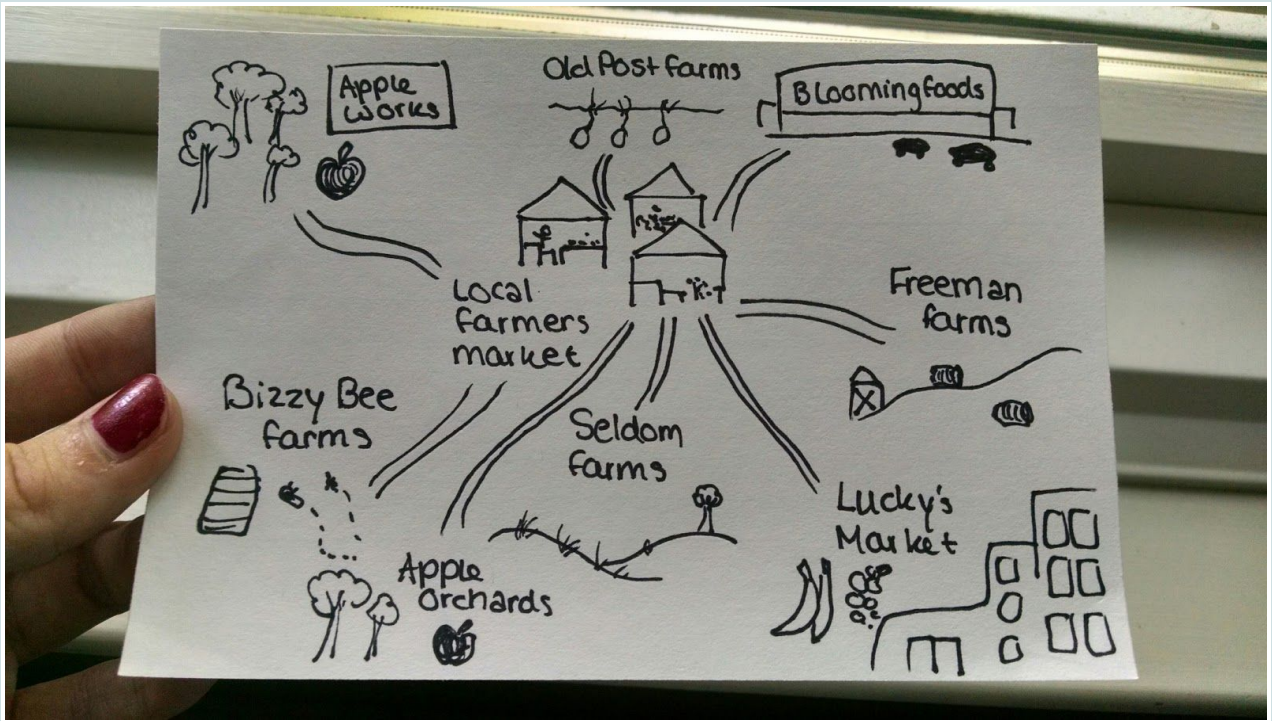 Apple
Works
Old Post farms
Bloomingfoods
Local
farmers
market
Freeman
farms
Bizzy Bee
farms
Seldom
farms
Lucky's
Market
Apple
Orchards